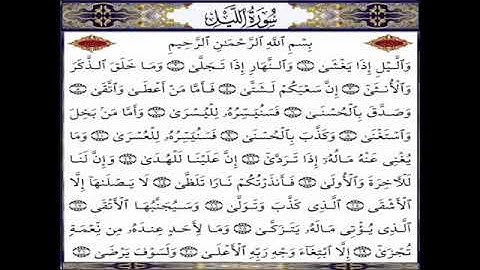 سُورَةُ اللَّيْلِ
بِسْمِ اللَّهِ الرَّحْمَٰنِ الرَّحِيمِ
وَاللَّيْلِ إِذَا يَغْشَىٰ ۝ وَالنَّهَارِ إِذَا تَجَلَّىٰ ۝ وَمَا خَلَقَ الذَّكَرَ
وَالْأُنثَىٰ ۝ إِنَّ سَعْيَكُمْ لَشَتَّىٰ ۝ فَأَمَّا مَنْ أَعْطَىٰ وَاتَّقَىٰ ۝
وَصَدَّقَ بِالْحُسْنَىٰ ۝ فَسَنُيَسِّرُهُ لِلْيُسْرَىٰ ۝ وَأَمَّا مَنْ بَخِلَ
وَاسْتَغْنَىٰ ۝ وَكَذَّبَ بِالْحُسْنَىٰ ۝ فَسَنُيَسِّرُهُ لِلْعُسْرَىٰ ۝ وَمَا
يُغْنِي عَنْهُ مَالُهُ إِذَا تَرَدَّىٰ ۝ إِنَّ عَلَيْنَا لَلْهُدَىٰ ۝ وَإِنَّ لَنَا
لَلْآخِرَةَ وَالْأُولَىٰ ۝ فَأَنذَرْتُكُمْ نَارًا تَلَظَّىٰ ۝ لَا يَصْلَاهَا إِلَّا
الْأَشْقَى ۝ الَّذِي كَذَّبَ وَتَوَلَّىٰ ۝ وَسَيُجَنَّبُهَا الْأَتْقَى ۝
الَّذِي يُؤْتِي مَالَهُ يَتَزَكَّىٰ ۝ وَمَا لِأَحَدٍ عِندَهُ مِن نِّعْمَةٍ
تُجْزَىٰ ۝ إِلَّا ابْتِغَاءَ وَجْهِ رَبِّهِ الْأَعْلَىٰ ۝ وَلَسَوْفَ يَرْضَىٰ ۝